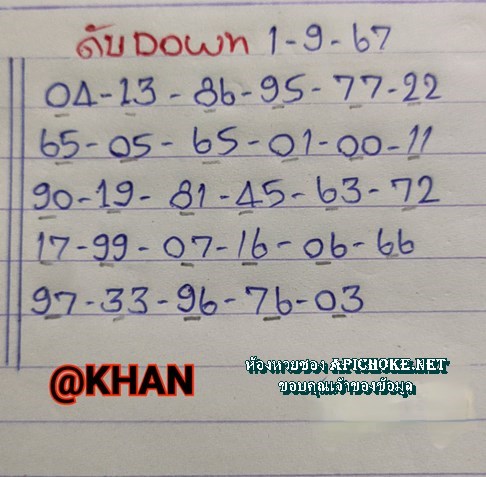 ดับDOWท 1-9-67
04-13-86-95-77-22
65-05-65-01-00-11
90-19-81-45-63-72
17-99-07-16-06-66
97-33-96-76-03
@KHAN
ห้องหวยซอง APICHOKE.NET
ขอบคุณเจ้าของข้อมูล